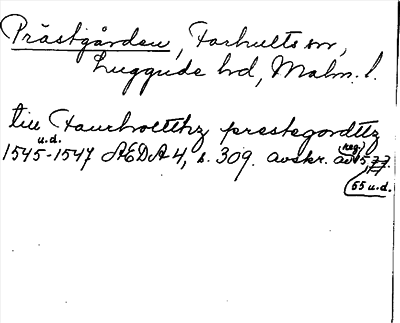 Prästgården, Farhults sn,
Luggude hd, Malm. l.
till Faurholtthz prestegordttz
u.d.
1545-1547 AEDA 4, s. 309. avskr. av 1577
reg.
55 u.d.